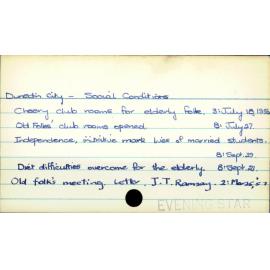 Dunedin City - Social Conditions
Cheery club rooms for elderly folk. 3: July 18, 1958
Old Folks' club rooms opened 8: July 27.
Independence, initiative mark lives of married students.
8: Sept. 29.
Diet difficulties overcome for the elderly. 8: Sept. 29.
Old folk's meeting. Letter. J.T. Ramsay. 2: Mar 25,
EVENING STAR